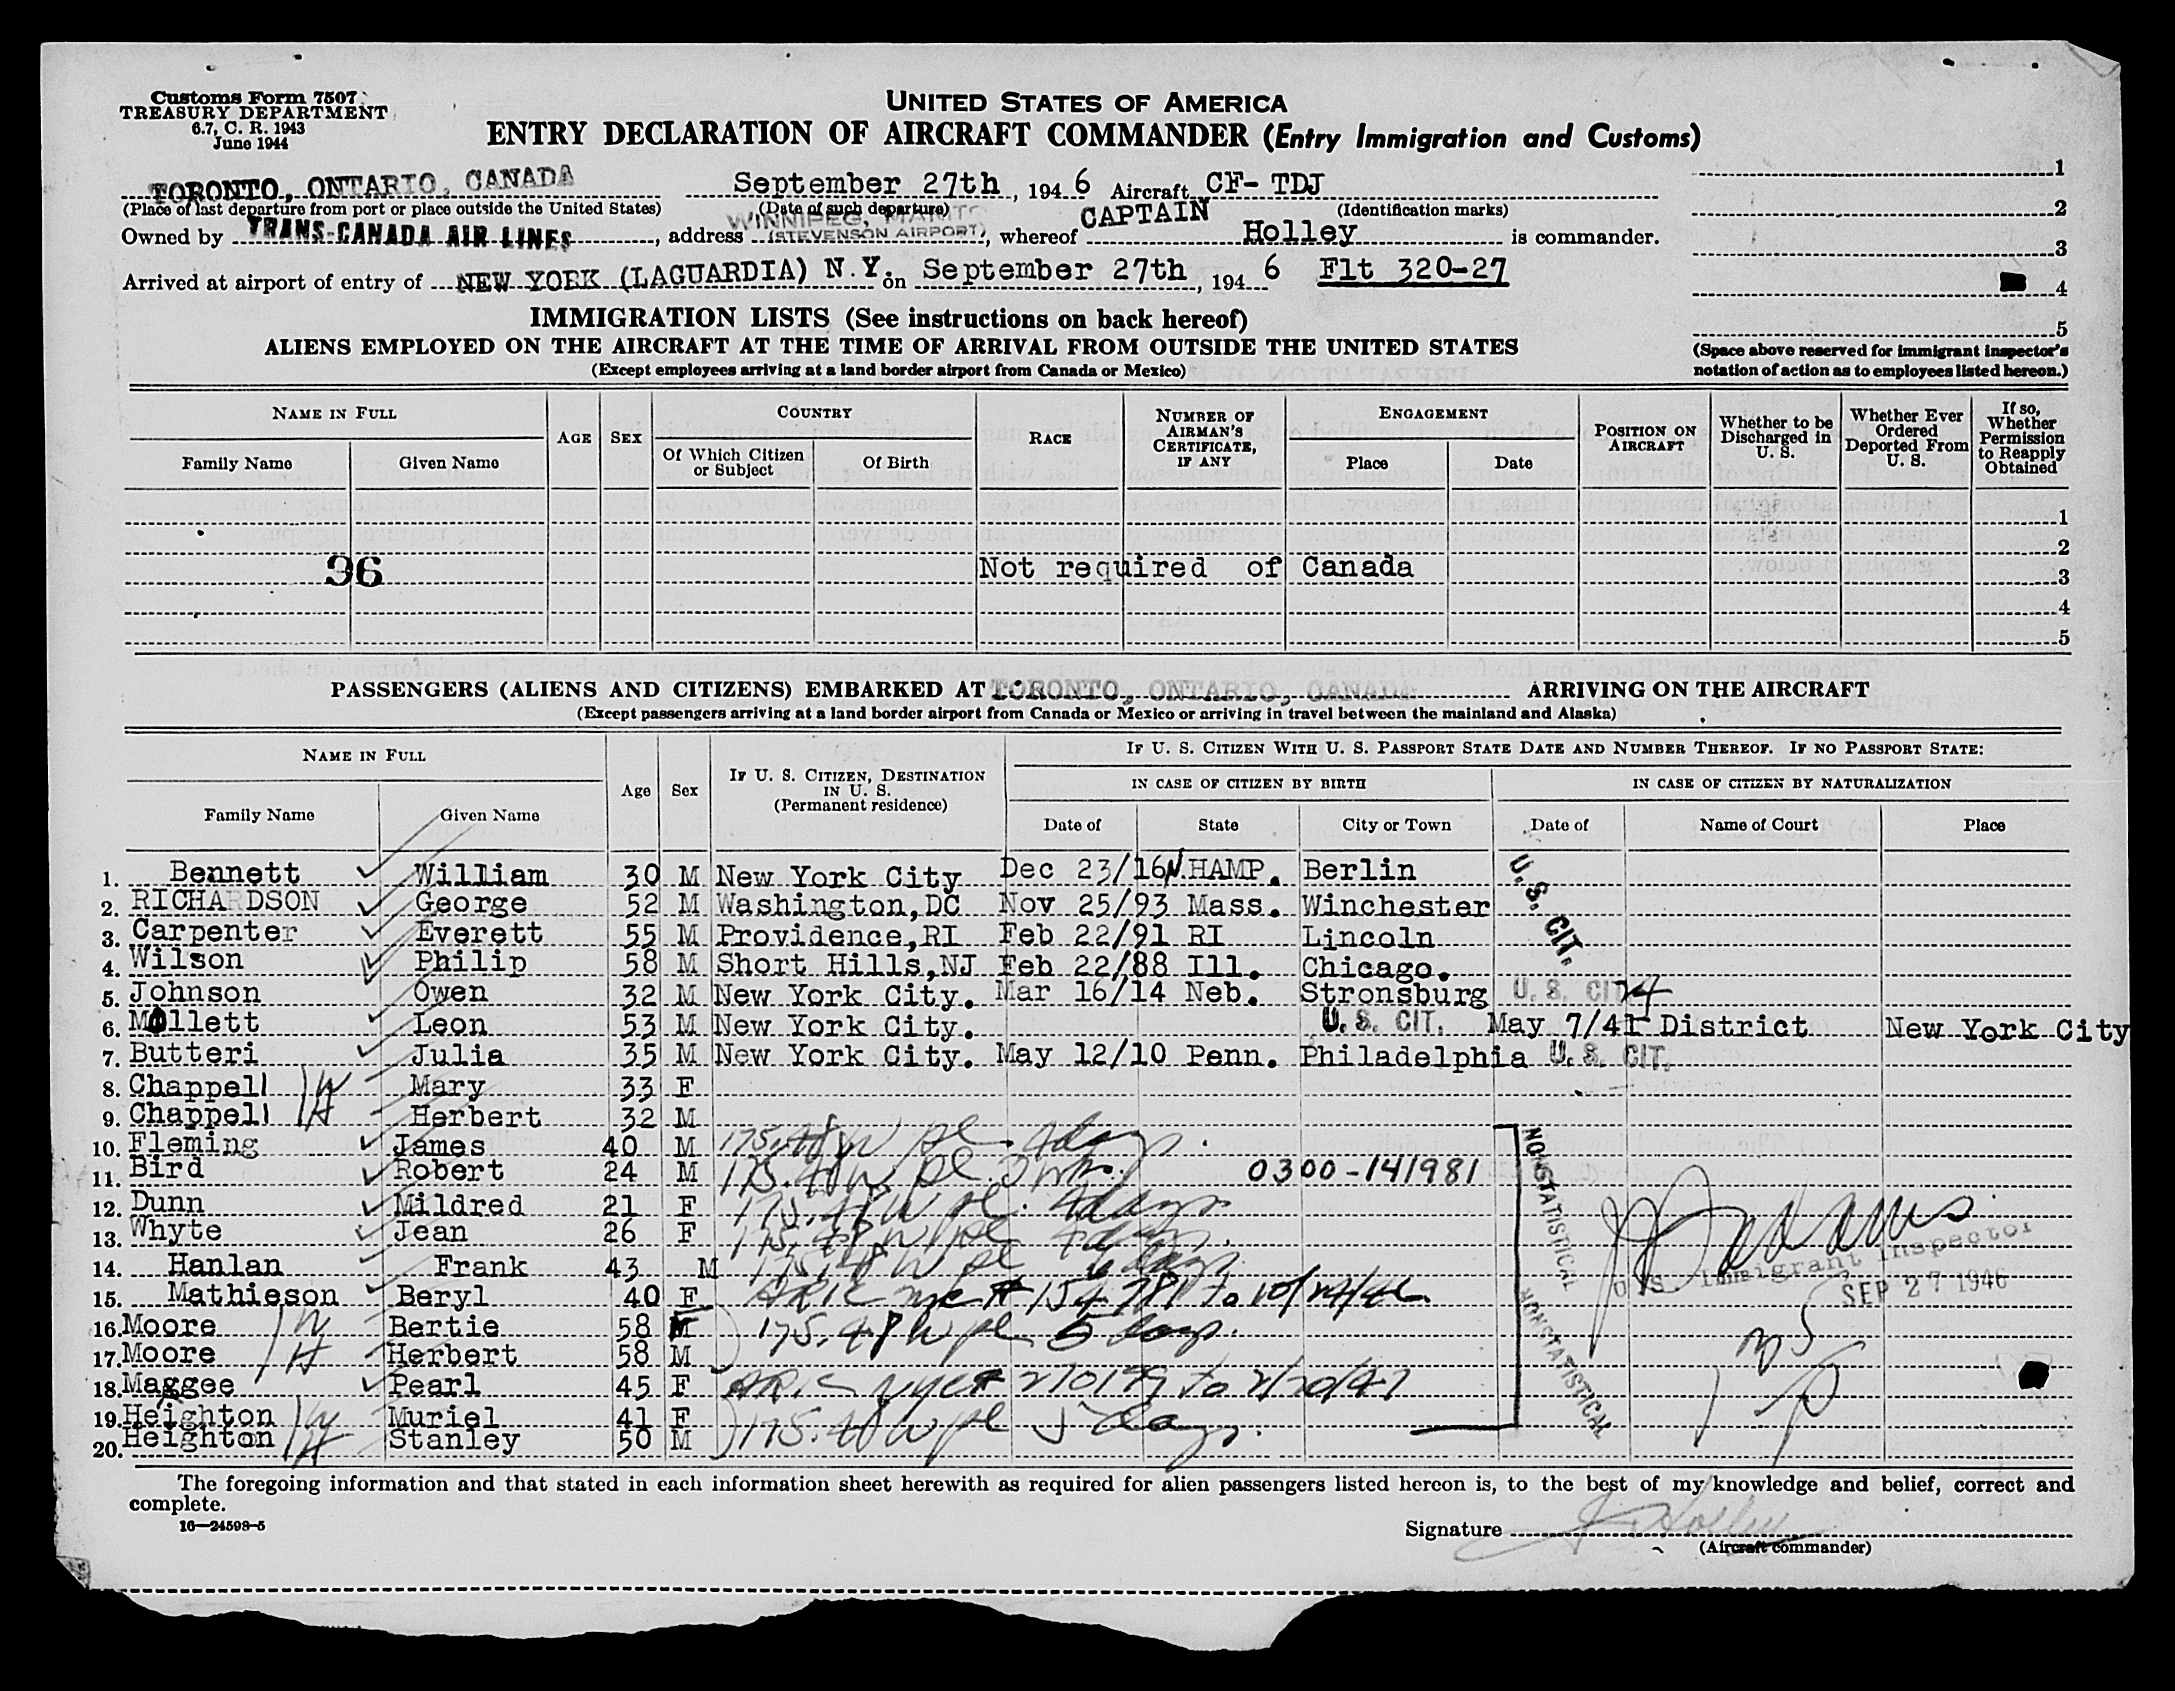 Customs Form 7507
TREASURY DEPARTMENT
6.7, C. R. 1943
June 1944
UNITED STATES OF AMERICA
ENTRY DECLARATION OF AIRCRAFT COMMANDER (Entry Immigration and Customs)
TORONTO, ONTARIO, CANADA September 27th, 1946 Aircraft CF-TDJ
(Place of last departure from port or place outside the United States) (Date of such departure) (Identification marks)
Owned by TRANS-CANADA AIR LINES, address WINNIPEG, MANITO (STEVENSON AIRPORT), whereof CAPTAIN Holley is commander.
Arrived at airport of entry of NEW YORK (LAGUARDIA) N.Y. on September 27th, 1946 Flt 320-27
1
2
3
4
5
(Space above reserved for immigrant inspector's notation of action as to employees listed hereon.)
IMMIGRATION LISTS (See instructions on back hereof)
ALIENS EMPLOYED ON THE AIRCRAFT AT THE TIME OF ARRIVAL FROM OUTSIDE THE UNITED STATES
(Except employees arriving at a land border airport from Canada or Mexico)
NAME IN FULL AGE SEX COUNTRY RACE NUMBER OF AIRMAN'S CERTIFICATE, IF ANY ENGAGEMENT POSITION ON AIRCRAFT Whether to be Discharged in U. S. Whether Ever Ordered Deported From U. S. If so, Whether Permission to Reapply Obtained
Family Name Given Name Of Which Citizen or Subject Of Birth Place Date
1
2
96 Not required of Canada 3
4
5
PASSENGERS (ALIENS AND CITIZENS) EMBARKED AT TORONTO, ONTARIO, CANADA ARRIVING ON THE AIRCRAFT
(Except passengers arriving at a land border airport from Canada or Mexico or arriving in travel between the mainland and Alaska)
NAME IN FULL Age Sex IF U. S. CITIZEN, DESTINATION IN U. S. (Permanent residence) IF U. S. CITIZEN WITH U. S. PASSPORT STATE DATE AND NUMBER THEREOF. IF NO PASSPORT STATE:
IN CASE OF CITIZEN BY BIRTH IN CASE OF CITIZEN BY NATURALIZATION
Family Name Given Name Date of State City or Town Date of Name of Court Place
1. Bennett William 30 M New York City Dec 23/16 N.HAMP. Berlin U.S. CIT.
2. RICHARDSON George 52 M Washington,DC Nov 25/93 Mass. Winchester
3. Carpenter Everett 55 M Providence,RI Feb 22/91 RI Lincoln
4. Wilson Philip 58 M Short Hills,NJ Feb 22/88 Ill. Chicago.
5. Johnson Owen 32 M New York City. Mar 16/14 Neb. Stronsburg U. S. CIT
6. Mollett Leon 53 M New York City. U. S. CIT. May 7/41 District New York City
7. Butteri Julia 35 M New York City. May 12/10 Penn. Philadelphia U. S. CIT.
8. Chappell W Mary 33 F
9. Chappell H Herbert 32 M
10. Fleming James 40 M 175.48 W pl. 4 days.
11. Bird Robert 24 M 175.48 W pl. 0300-141981
12. Dunn Mildred 21 F 175.48 W pl. 4 days
13. Whyte Jean 26 F 175.48 W pl 4 days.
14. Hanlan Frank 43 M 175.48 W pl 6 days
15. Mathieson Beryl 40 F
16. Moore W Bertie 58 M 175.48 W pl 5 days.
17. Moore H Herbert 58 M
18. Maggee Pearl 45 F 270199 to 2/20/47
19. Heighton W Muriel 41 F 175.48 W pl 5 days.
20. Heighton H Stanley 50 M
NONSTATISTICAL
NONSTATISTICAL
U. S. Immigrant Inspector
SEP 27 1946
The foregoing information and that stated in each information sheet herewith as required for alien passengers listed hereon is, to the best of my knowledge and belief, correct and
complete.
16—24598-5
Signature J. Holley
(Aircraft commander)